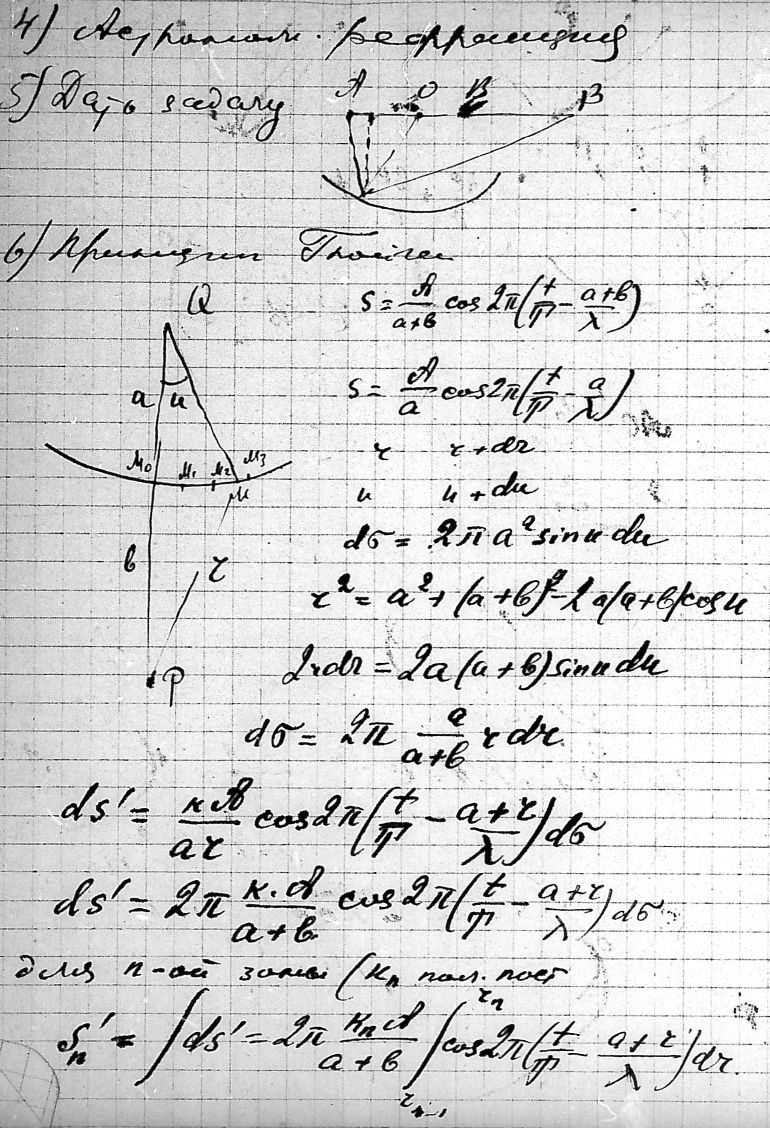 4) Астроном. рефракция
5) Дать задачу
A O B B
6) Принцип Гюйгенса
Q
S = A/(a+b) cos 2π(t/T − (a+b)/λ)
a u
S = A/a cos 2π(t/T − a/λ)
M₀ M₁ M₂ M₃
r r + dr
M
u u + du
dσ = 2π a² sin u du
b r
r² = a² + (a+b)² − 2a(a+b) cos u
P
2rdr = 2a(a+b) sin u du
dσ = 2π a/(a+b) r dr
ds' = кA/(ar) cos 2π(t/T − (a+r)/λ) dσ
ds' = 2π к.A/(a+b) cos 2π(t/T − (a+r)/λ) dσ
для n-ой зоны (кₙ пол. пост
S'ₙ = ∫ds' = 2π кₙA/(a+b) ∫_{rₙ₋₁}^{rₙ} cos 2π(t/T − (a+r)/λ) dr.